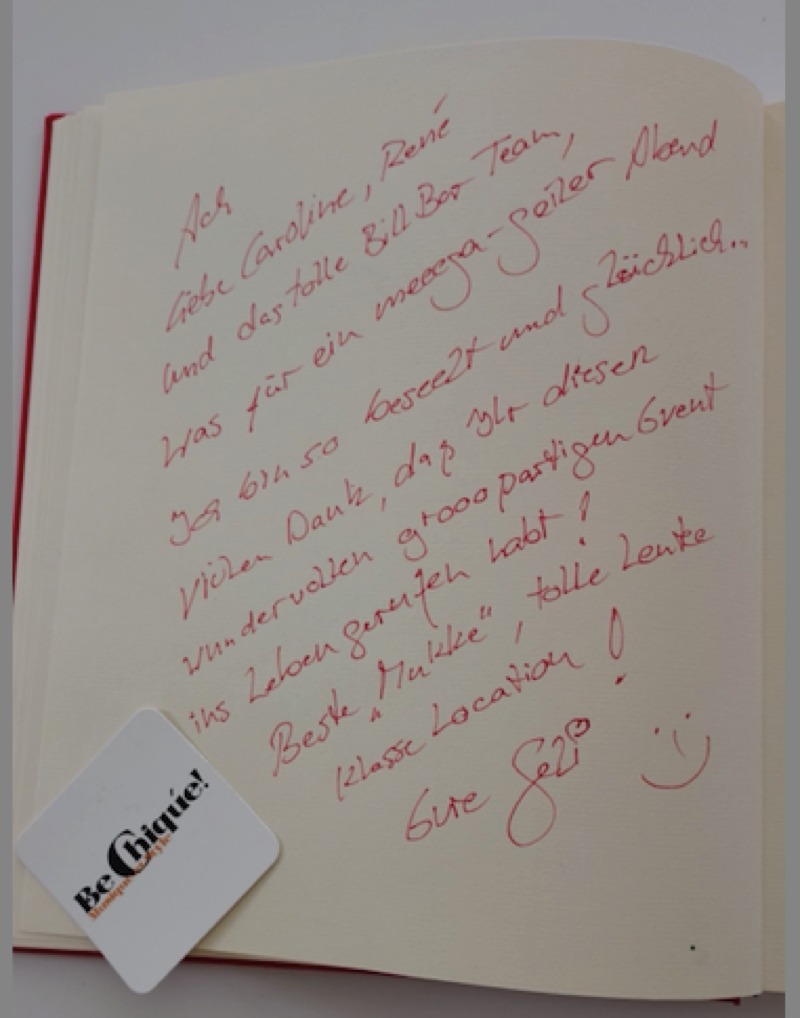 Ach
liebe Caroline, René
und das tolle Bill Bar Team,
was für ein meeega-geiler Abend
Ich bin so beseelt und glücklich..
Vielen Dank, daß Ihr diesen
wundervollen grooopartigen Event
ins Leben gerufen habt!
Beste „Mukke“, tolle Leute
klasse Location!
Eure Geli :)
Be Chiqúe!